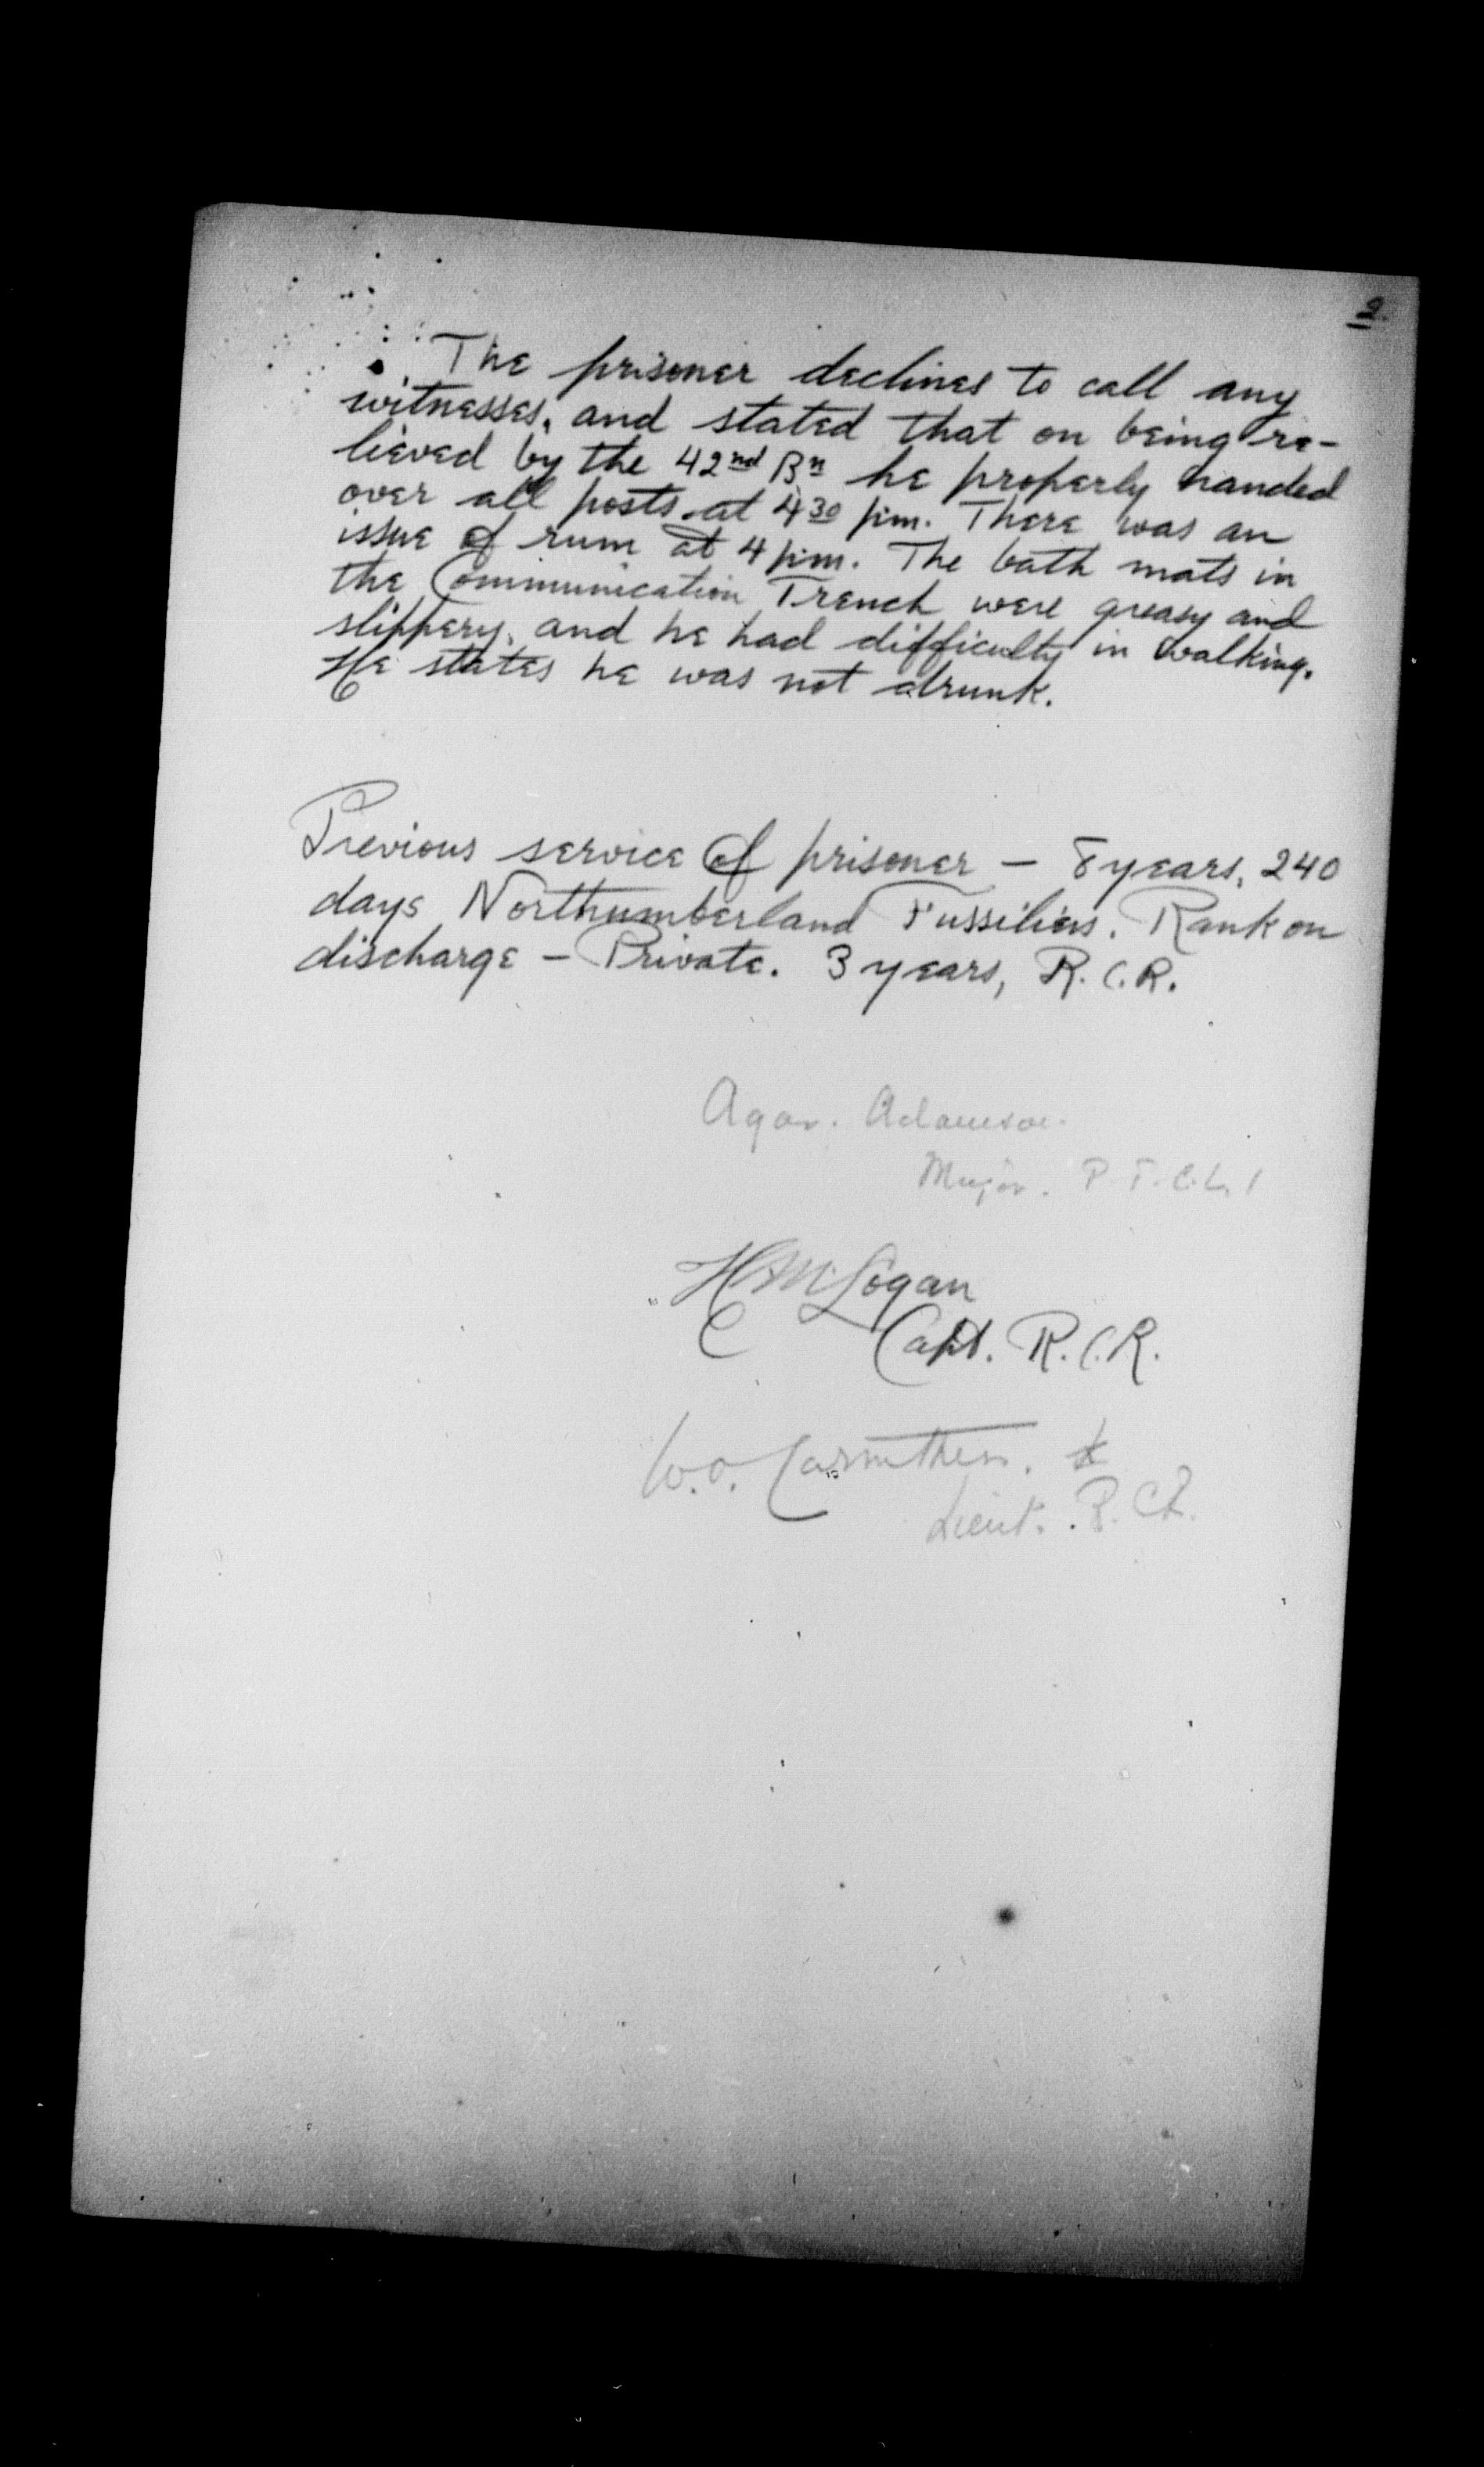 2.
The prisoner declines to call any
witnesses, and stated that on being re-
lieved by the 42nd Bn he properly handed
over all posts at 430 pm. There was an
issue of rum at 4 pm. The bath mats in
the Communication Trench were greasy and
slippery, and he had difficulty in walking.
He states he was not drunk.
Previous service of prisoner - 8 years, 240
days Northumberland Fussiliers. Rank on
discharge - Private. 3 years, R.C.R.
Agar. Adamson.
Major. P.P.C.L.I
H M Logan
Capt. R.C.R.
W.O. Carruthers.
Lieut. R.C.R.